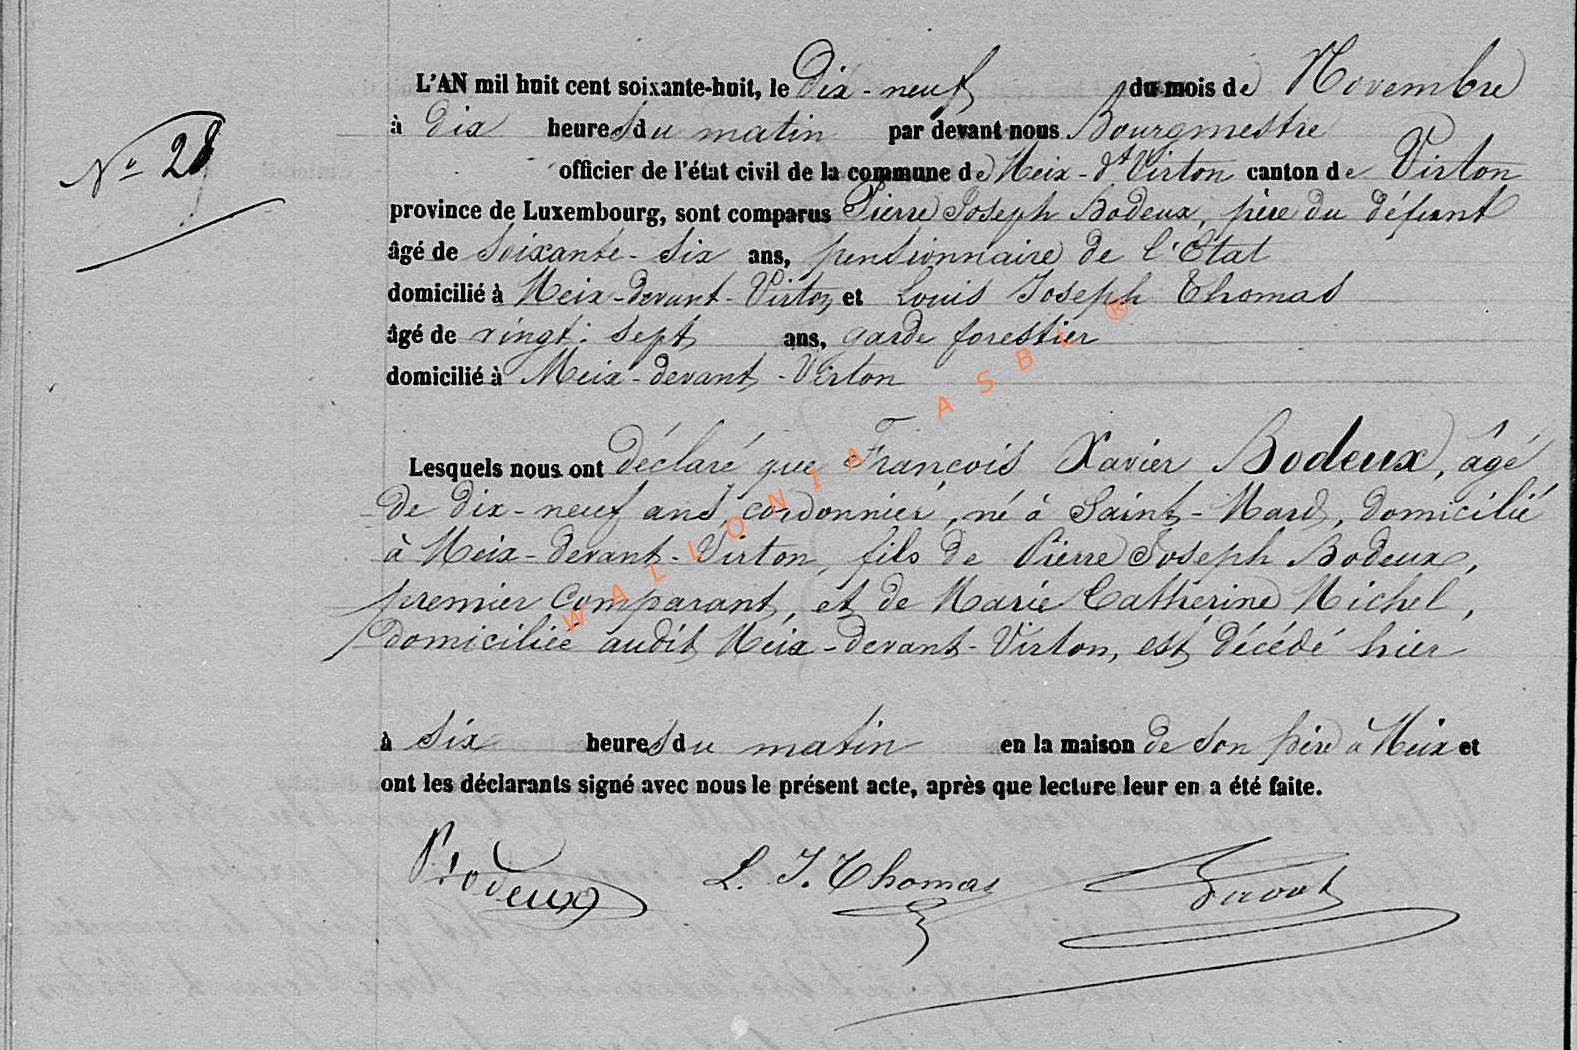 L'AN mil huit cent soixante-huit, le Dix-neuf du mois de Novembre
à Dix heures du matin par devant nous Bourgmestre
Nº 28
officier de l'état civil de la commune de Meix-dt Virton canton de Virton
province de Luxembourg, sont comparus Pierre Joseph Bodeux, père du défunt
âgé de Soixante-six ans, pensionnaire de l'Etat
domicilié à Meix-devant-Virton, et Louis Joseph Thomas
âgé de vingt-sept ans, garde forestier
domicilié à Meix-devant-Virton
Lesquels nous ont déclaré que François Xavier Bodeux, âgé
de dix-neuf ans, cordonnier, né à Saint-Mard, domicilié
à Meix-devant-Virton, fils de Pierre Joseph Bodeux,
premier comparant, et de Marie Catherine Michel,
domiciliée audit Meix-devant-Virton, est décédé hier
à six heures du matin en la maison de son père à Meix et
ont les déclarants signé avec nous le présent acte, après que lecture leur en a été faite.
Bodeux L. J. Thomas
WALLONIA ASBL ®